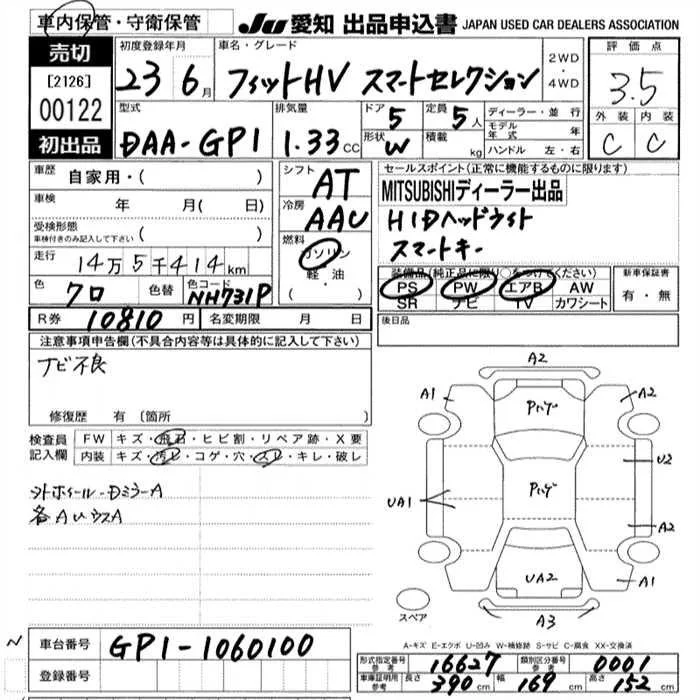 車内保管・守衛保管
JU 愛知 出品申込書 JAPAN USED CAR DEALERS ASSOCIATION
売切
[2126]
00122
初出品
初度登録年月 23 6月
車名・グレード フィットHV スマートセレクション
2WD・4WD
評価点 3.5
外装 C 内装 C
型式 DAA-GP1
排気量 1.33 CC
ドア 5 定員 5人
形状 W 積載 kg
ディーラー・並行
モデル年式 年
ハンドル 左・右
車歴 自家用・( )
車検 年 月( 日)
受検形態
車検付きのみ記入して下さい ( )
走行 14万5千414km
色 クロ 色替 色コード NH731P
シフト AT
冷房 AAC
燃料 ガソリン
軽・油
・( )
セールスポイント(正常に機能するものに限ります)
MITSUBISHIディーラー出品
HIDヘッドライト
スマートキー
装備品(純正品に限り○をつけてください)
PS PW エアB AW
SR ナビ TV カワシート
新車保証書
有・無
R券 10810円 名変期限 月 日
後日品
注意事項申告欄(不具合内容等は具体的に記入して下さい)
ナビ不良
修復歴 有(箇所
検査員記入欄
FW キズ・飛石・ヒビ割・リペア跡・X要
内装 キズ・汚レ・コゲ・穴・スレ・キレ・破レ
外ホイール・DミラーA
各AUウスA
A2
A1
A2
Pハゲ
U2
Pハゲ
UA1
A2
UA2
A1
スペア
A3
A-キズ E-エクボ U-凹み W-補修跡 S-サビ C-腐食 XX-交換済
車台番号 GP1-1060100
登録番号
形式指定番号 参考 16627 類別区分番号 参考 0001
車庫証明用 参考 長さ 390cm 幅 169cm 高さ 152cm